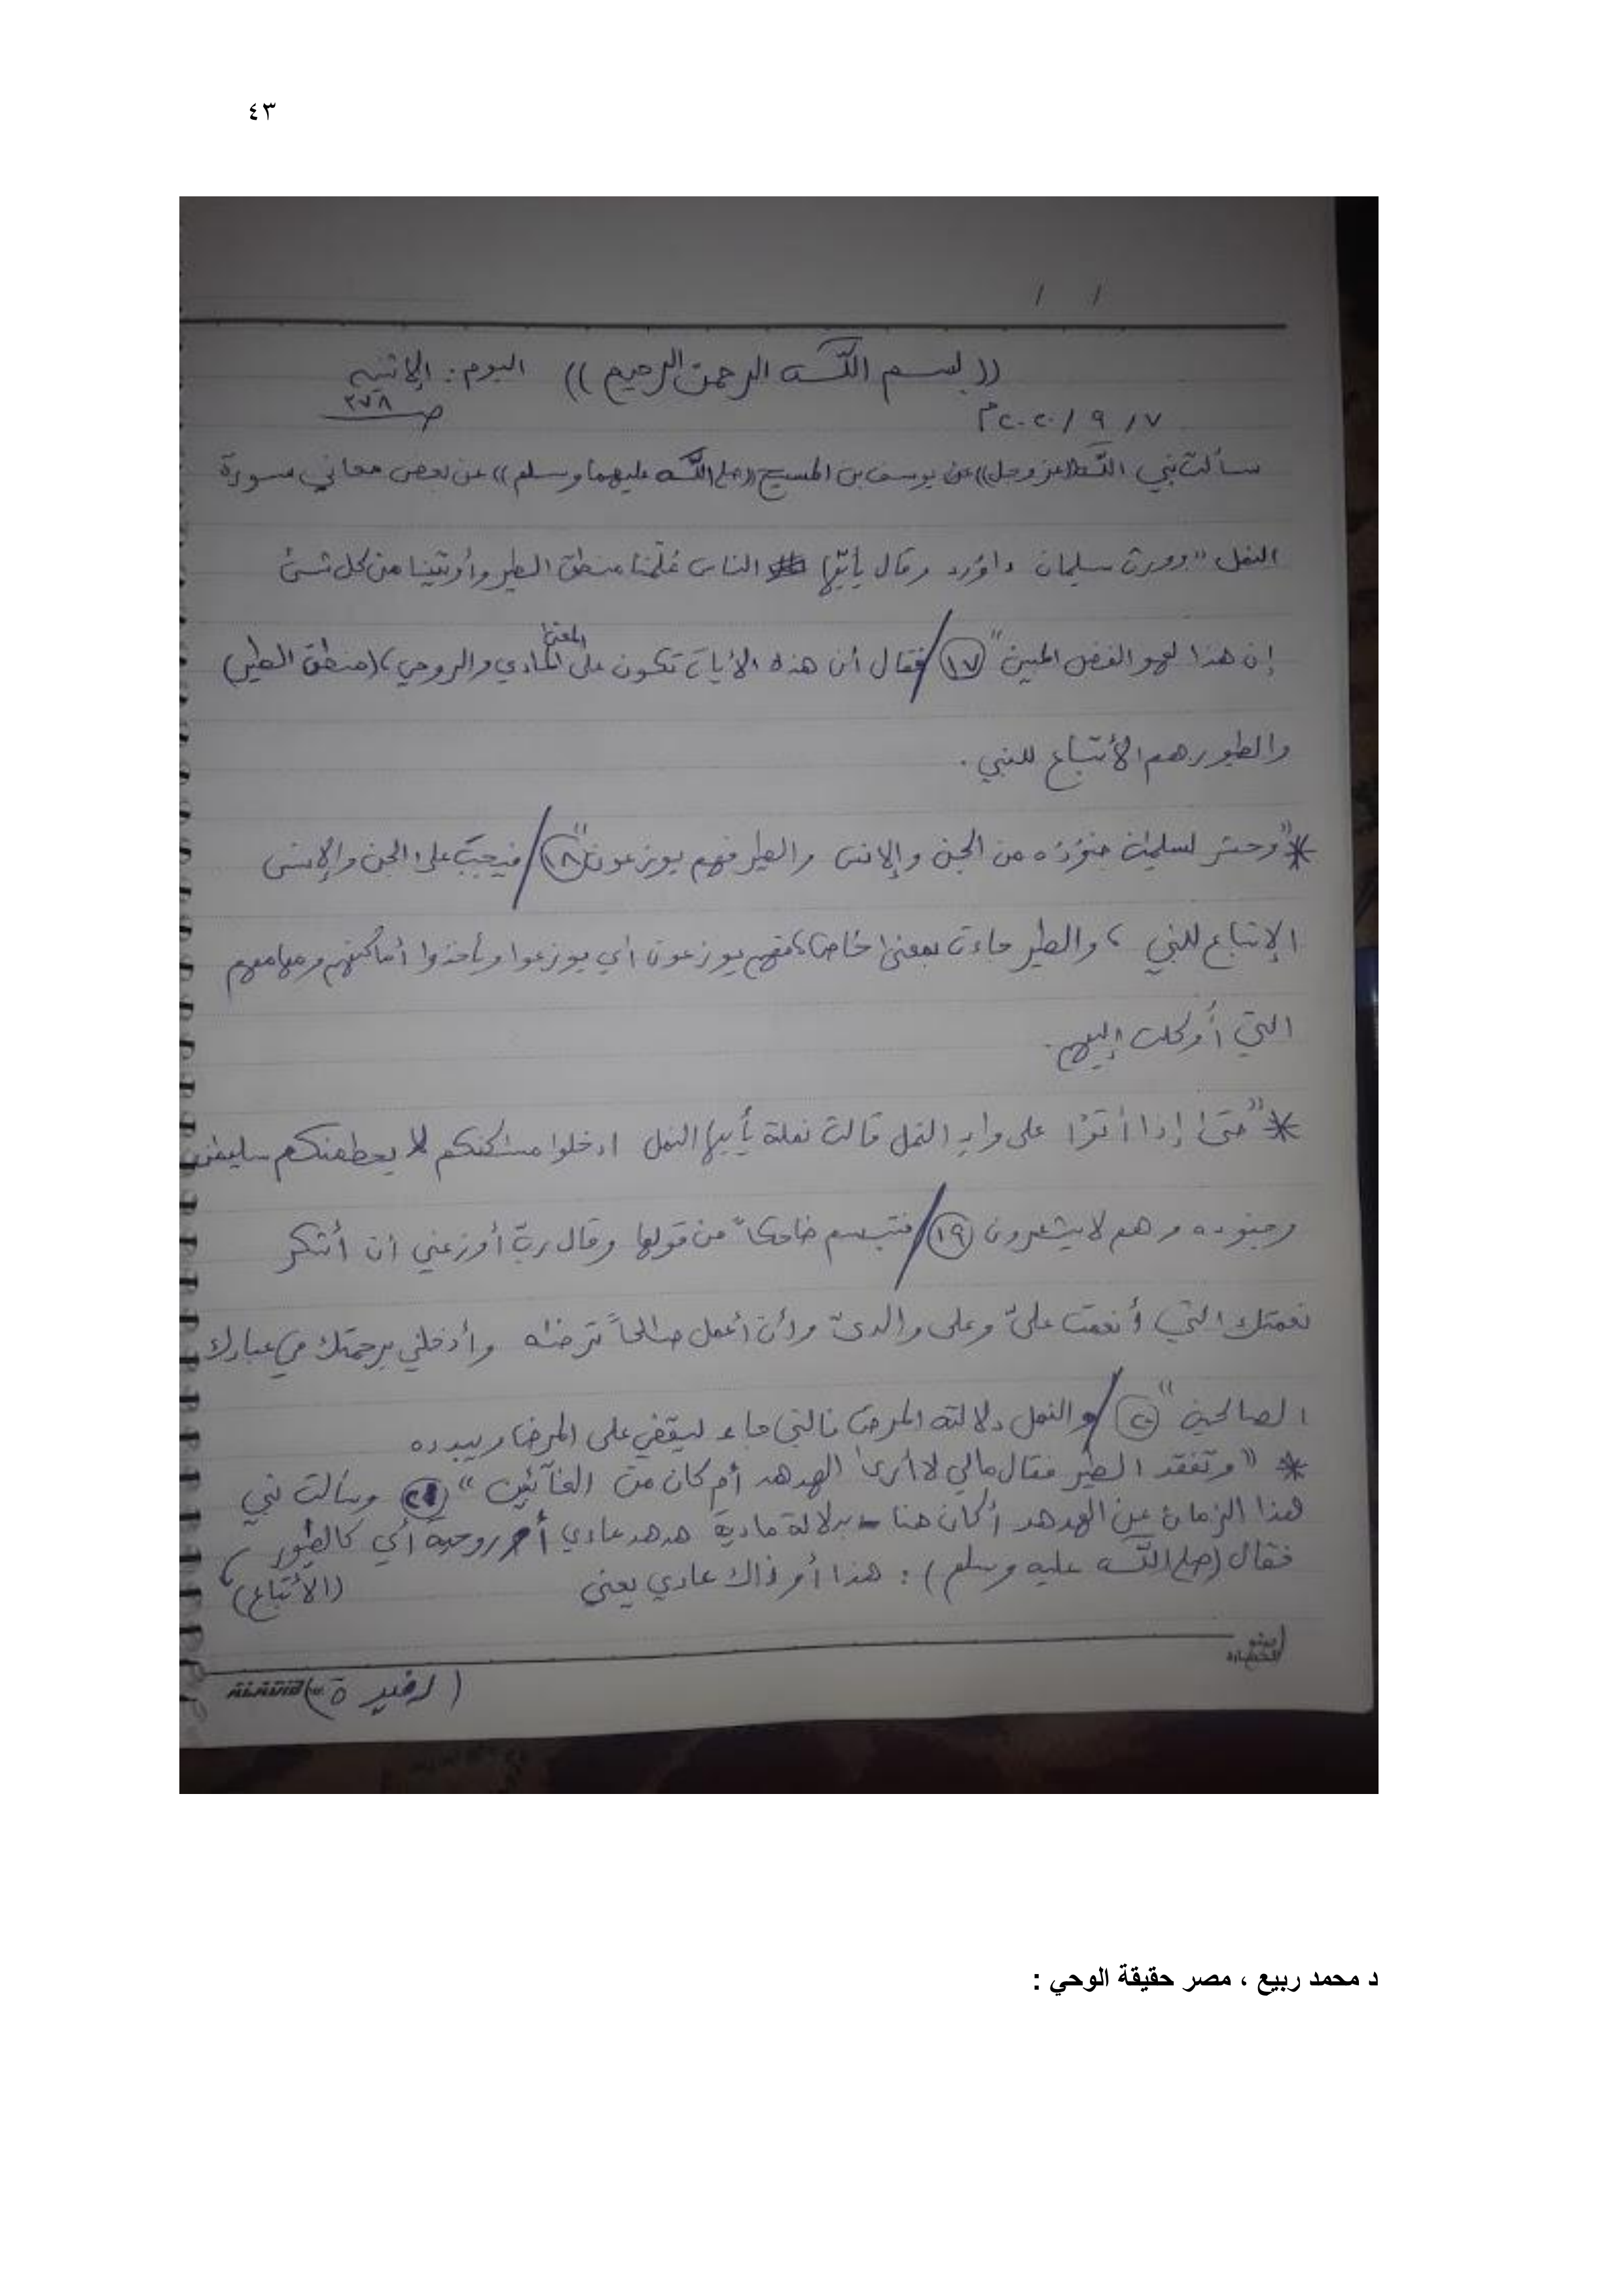 ٤٣
/ /
((بسم اللّـه الرحمن الرحيم)) اليوم: الإثنين
٧/ ٩/ ٢٠٢٠م ص ٢٧٨
سألت نبي اللّـه((عز وجل)) عن يوسف بن المسيح((صلى اللّـه عليهما وسلم)) عن بعض معاني سورة
النمل "وورث سليمان داوُرد وقال يأيّها الناس عُلّمنا منطق الطير وأوتينا من كل شئ
إن هذا لهو الفضل المبين" (١٧)/ فقال أن هذه الأيات تكون على المعنى المادي والروحي،(منطق الطير)
والطيور هم الأتباع للنبي.
*"وحشر لسليمٰن جنوده من الجن والإنس والطير فهم يوزعون" (١٨)/ فيجب على الجن والإنس
الإتباع للنبي، والطير جاءت بمعنى خاص، فهم يوزعون أي يوزعوا ويأخذوا أماكنهم ومهامهم
التي أُوكلت إليهم.
*"حتى إذا أتوْا على وادِ النمل قالت نملة يأيها النمل ادخلوا مسٰكنكم لا يحطمنكم سليمٰن
وجنوده وهم لا يشعرون (١٩)/ فتبسم ضاحكاً من قولها وقال ربّ أوزعني أن أشكر
نعمتك التي أنعمت عليّ وعلى والديّ وأن أعمل صالحاً ترضٰه وأدخلني برحمتك في عبادك
الصالحين" (٢٠)/ والنمل دلالته المرض فالنبي جاء ليقضي على المرض ويبيده
* "وتفقد الطير فقال مالي لا أرى الهدهد أم كان من الغآئبين" (٢١) وسألت نبي
هذا الزمان عن الهدهد أكان هنا بدلالة مادية هدهد عادي أم روحية أي كالطيور
(الأتباع)
فقال (صلى اللّـه عليه وسلم): هذا أو ذاك عادي يعني
د محمد ربيع ، مصر حقيقة الوحي :